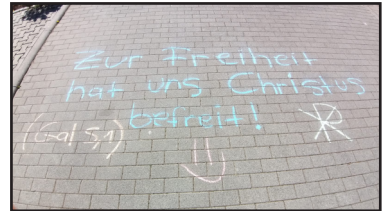 Zur Freiheit
hat uns Christus
befreit!
(Gal 5,1)